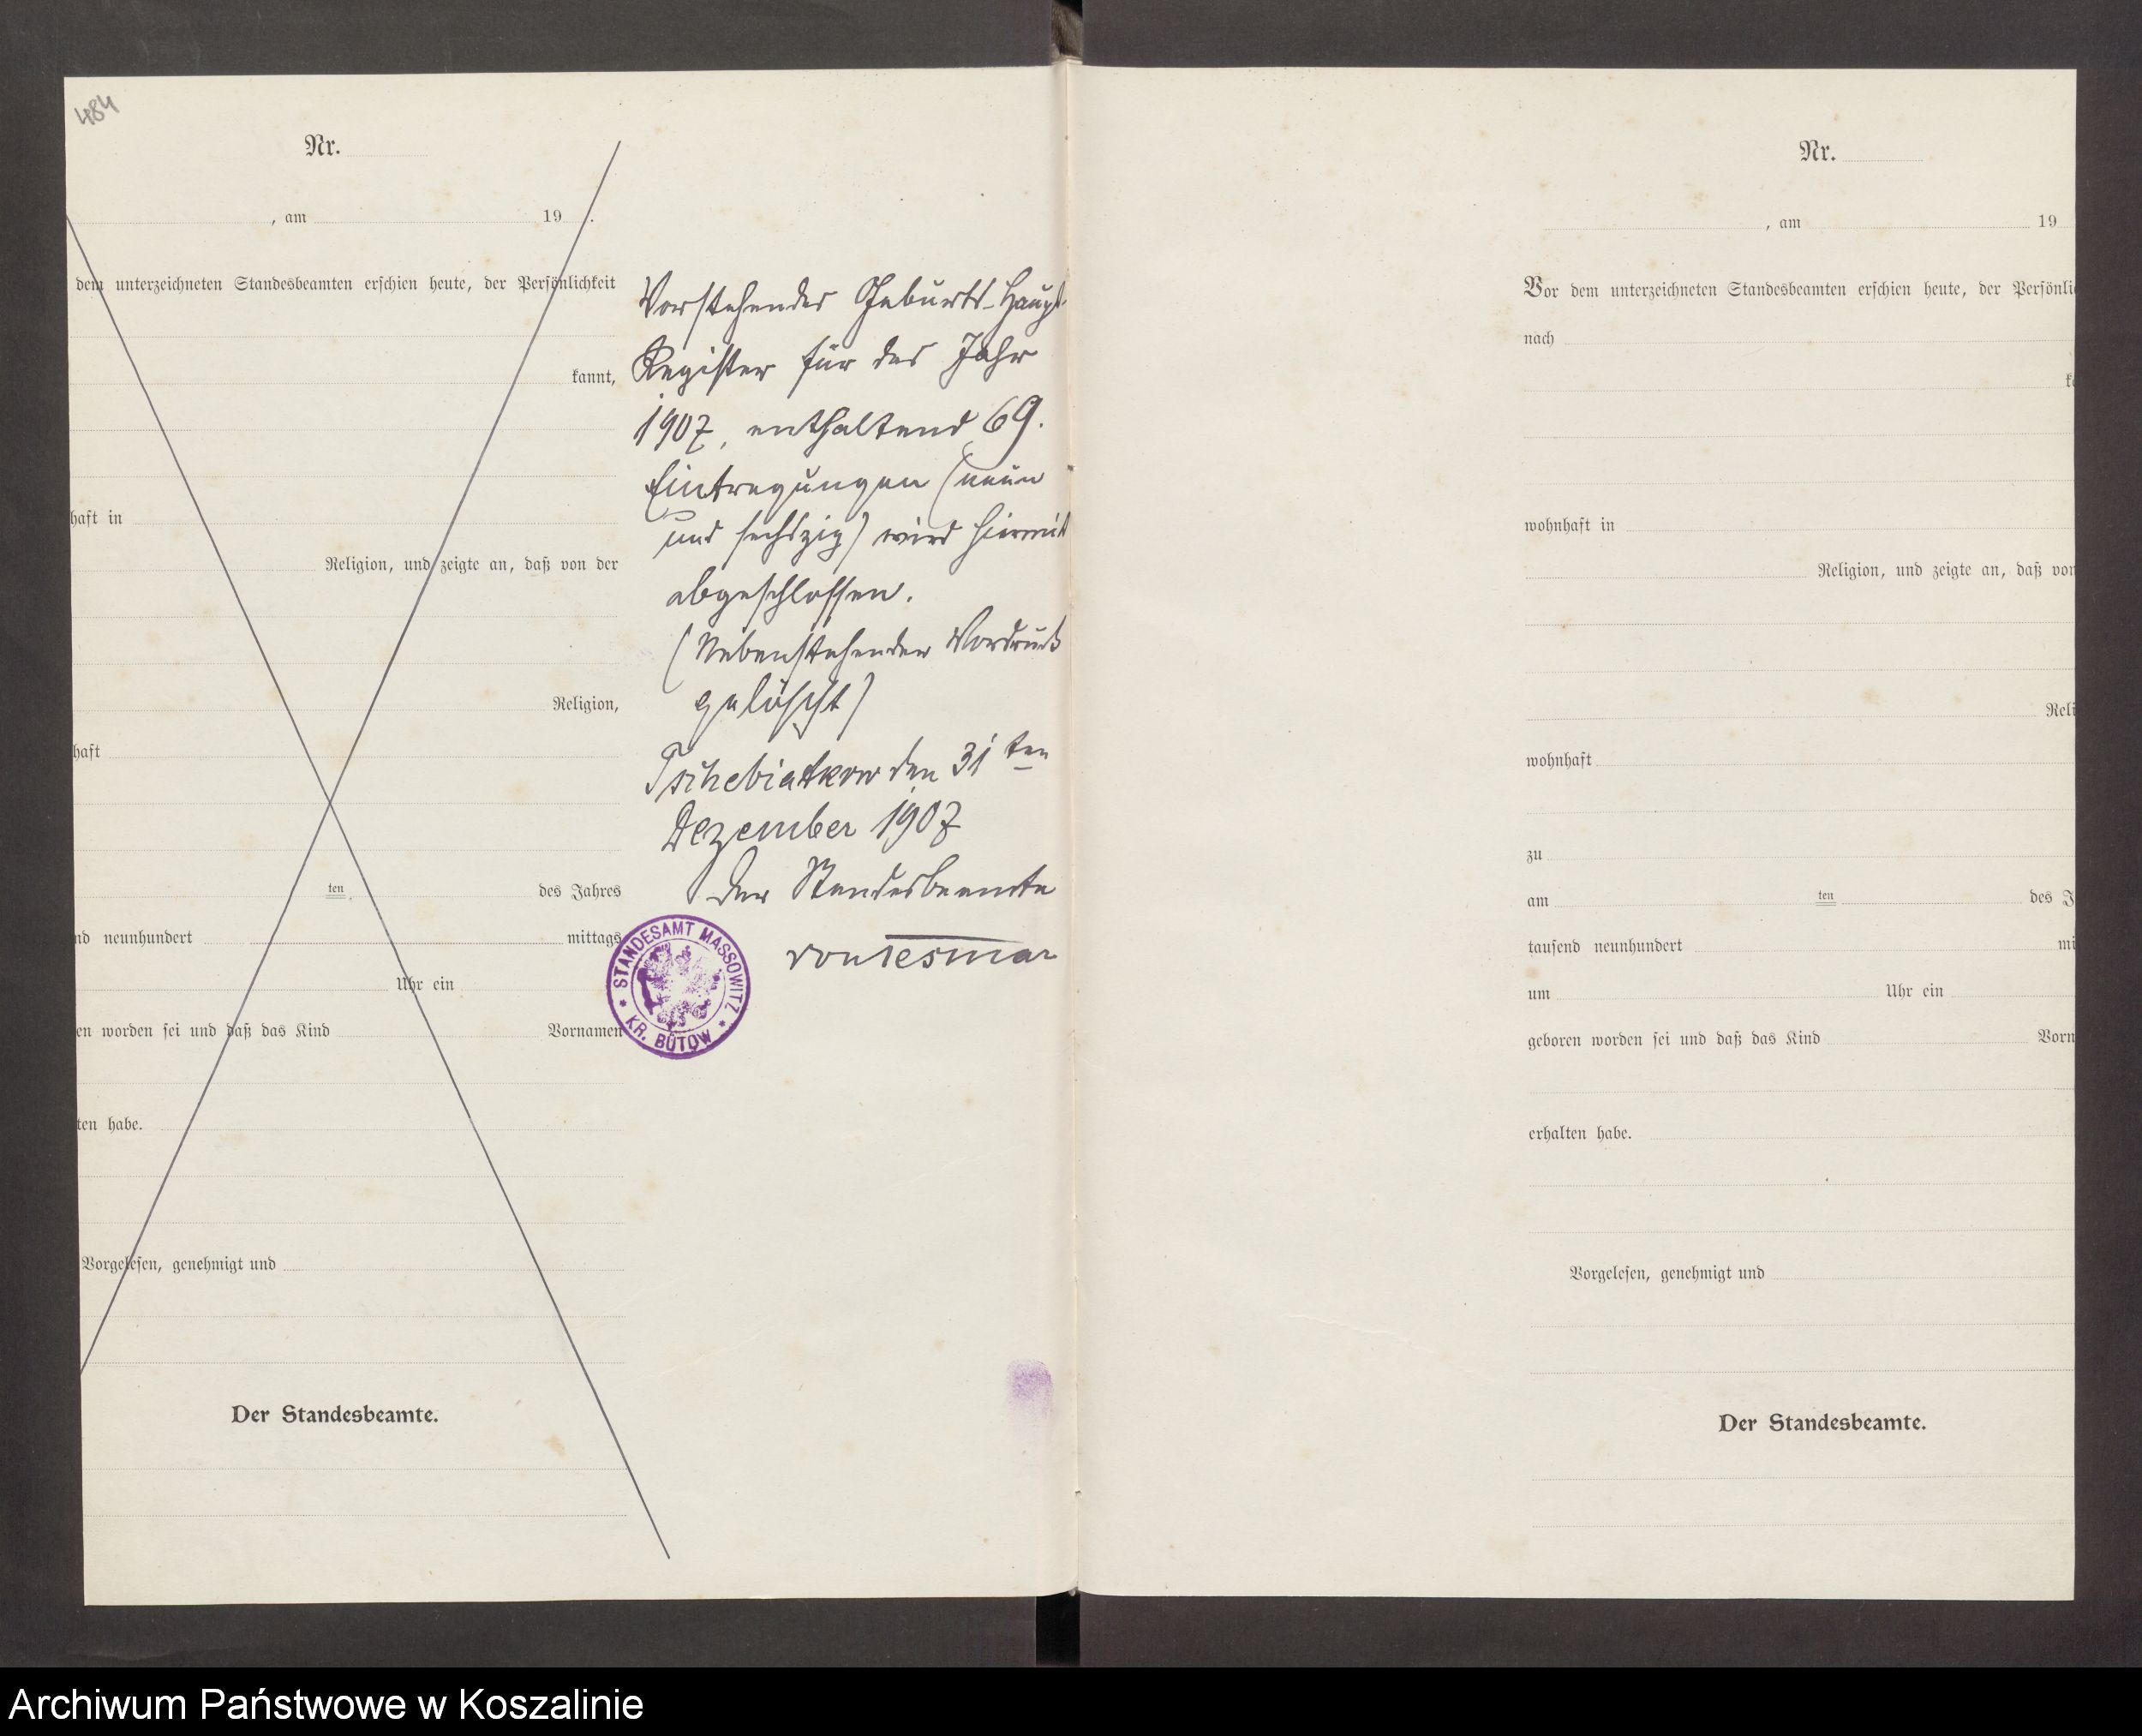 484
Nr.
, am 19 .
dem unterzeichneten Standesbeamten erschien heute, der Persönlichkeit
kannt,
haft in
Religion, und zeigte an, daß von der
Religion,
haft
ten des Jahres
nd neunhundert mittags
Uhr ein
en worden sei und daß das Kind Vornamen
ten habe.
Vorgelesen, genehmigt und
Der Standesbeamte.
Vorstehendes Geburts-Haupt-
Register für das Jahr
1907, enthaltend 69.
Eintragungen (neun
und sechszig) wird hiermit
abgeschlossen.
(Nebenstehender Vordruck
gelöscht)
Tschebiatkow den 31ten
Dezember 1907
Der Standesbeamte
von Tesmar
STANDESAMT MASSOWITZ
* KR. BÜTOW *
Nr.
, am 19
Vor dem unterzeichneten Standesbeamten erschien heute, der Persönli
nach
k
wohnhaft in
Religion, und zeigte an, daß von
Reli
wohnhaft
zu
am ten des J
tausend neunhundert mi
um Uhr ein
geboren worden sei und daß das Kind Vorn
erhalten habe.
Vorgelesen, genehmigt und
Der Standesbeamte.
Archiwum Państwowe w Koszalinie